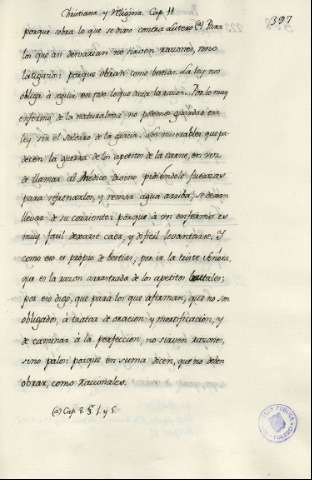 Christiana y Religiosa. Cap. 11
397
porque sobra lo que se dixo contra Lutero (a) Para
los que an devarian no sirven razones, sino
latigazos: porque obran como bestias. La ley nos
obliga à seguir en todo lo que dicta la razon. Por lo muy
enferma de la naturaleza no podemos guardar esa
ley sin el socorro de la gracia. Los miserables, que pa-
decen la guerra de los apetitos de la carne, en vez
de llamar al Medico Divino pidiendole fuerzas
para refrenarlos, y remar agua arriba, se dexan
llevar de su corriente: porque à un enfermo es
muy facil dexarse caer, y dificil levantarse. Y
como eso es propio de bestias, por la triste
que es la razon arrastrada de los apetitos brutales;
por eso digo, que para los que afirman, que no son
obligados, à tratar de oracion y mortificacion, y
de caminar à la perfeccion, no sirven razones,
sino palos: porque en suma dicen, que no deben
obrar, como Racionales.
(a) Cap. 8. § 1. y 5.
TOLEDO